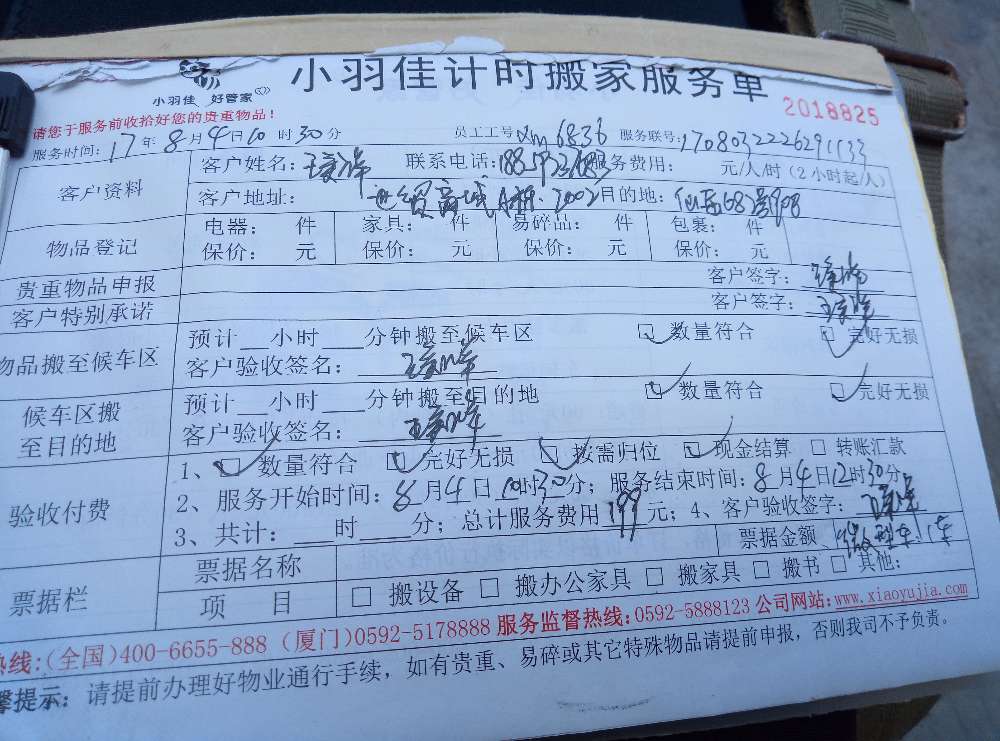 小羽佳计时搬家服务单
小羽佳 好管家
2018825
请您于服务前收拾好您的贵重物品!
服务时间: 17年 8月 4日 10时 30分 员工工号: xm6836 服务联号: 1708032226291133
客户资料
客户姓名: 联系电话: 服务费用: 元/人/时(2小时起/人)
客户地址: 世贸商城A栋2002 目的地: 仙岳687号908
物品登记
电器: 件 家具: 件 易碎品: 件 包裹: 件
保价: 元 保价: 元 保价: 元 保价: 元
贵重物品申报 客户签字:
客户特别承诺 客户签字:
物品搬至候车区
预计__小时___分钟搬至候车区 数量符合 完好无损
客户验收签名:
候车区搬至目的地
预计__小时___分钟搬至目的地 数量符合 完好无损
客户验收签名:
验收付费
1、 数量符合 完好无损 按需归位 现金结算 转账汇款
2、服务开始时间: 8月4日10时30分; 服务结束时间: 8月4日12时30分
3、共计: ___时____分; 总计服务费用 199 元; 4、客户验收签字:
票据栏
票据名称 票据金额 型车1车
项 目 搬设备 搬办公家具 搬家具 搬书 其他:
热线:(全国)400-6655-888 (厦门)0592-5178888 服务监督热线:0592-5888123 公司网站:www.xiaoyujia.com
馨提示: 请提前办理好物业通行手续, 如有贵重、易碎或其它特殊物品请提前申报, 否则我司不予负责。